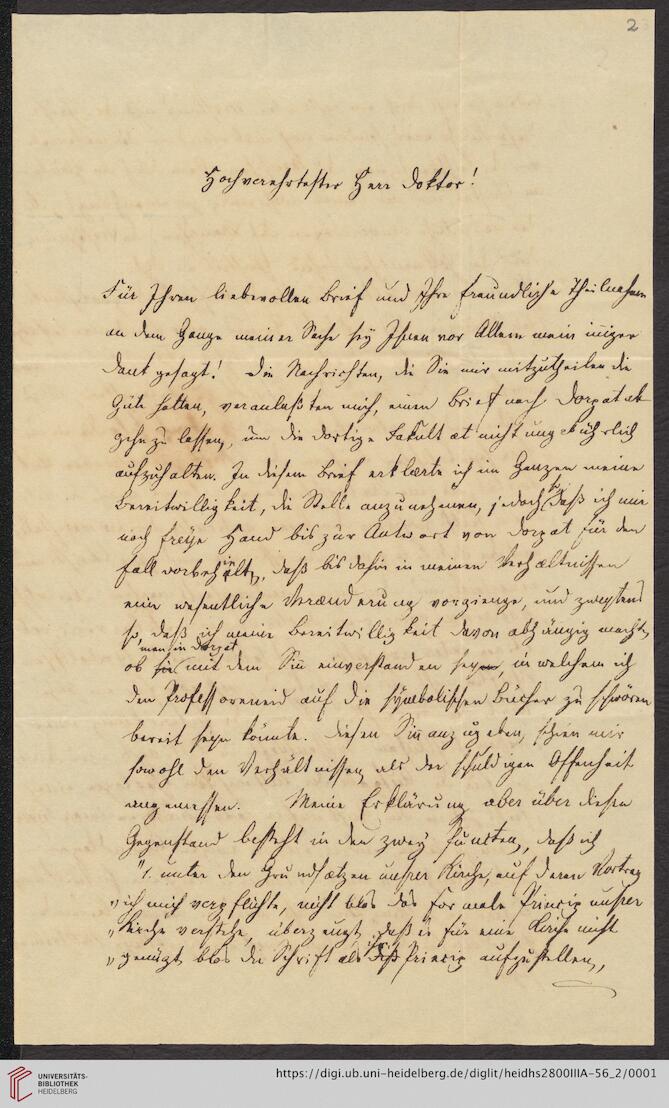 2
Hochverehrtester Herr Doktor!
Für Ihren liebevollen Brief und Ihre freundliche Theilnahme
an dem Gange meiner Sache sey Ihnen vor Allem mein inniger
Dank gesagt! Die Nachrichten, die Sie mir mitzutheilen die
Güte hatten, veranlaßten mich, einen Brief nach Dorpat ab-
gehn zu lassen, um die dortige Fakultæt nicht ungebührlich
aufzuhalten. In diesem Brief erklærte ich im Ganzen meine
Bereitwilligkeit, die Stelle anzunehmen, jedoch so, daß ich mir
noch freye Hand bis zur Antwort von Dorpat für den
Fall vorbehielt, daß bis dahin in meinen Verhæltnissen
eine wesentliche Verænderung vorgienge, und zweytens
so, daß ich meine Bereitwilligkeit davon abhængig machte,
man in Dorpat
ob sie mit dem Sinn einverstanden sey, in welchem ich
den Professoreneid auf die symbolischen Bücher zu schwören
bereit seyn könnte. Diesen Sinn anzugeben, schien mir
sowohl den Verhältnissen als der schuldigen Offenheit
angemessen. Meine Erklärung aber über diesen
Gegenstand besteht in den zwey Puncten, daß ich
"1. unter den Grundsætzen unsrer Kirche, auf deren Vortrag
"ich mich verpflichte, nicht blos das formale Princip unsrer
"Kirche verstehe, überzeugt, daß es für eine Kirche nicht
"genügt, blos die Schrift als Princip aufzustellen,
UNIVERSITÄTS-
BIBLIOTHEK
HEIDELBERG
https://digi.ub.uni-heidelberg.de/diglit/heidhs2800IIIA-56_2/0001